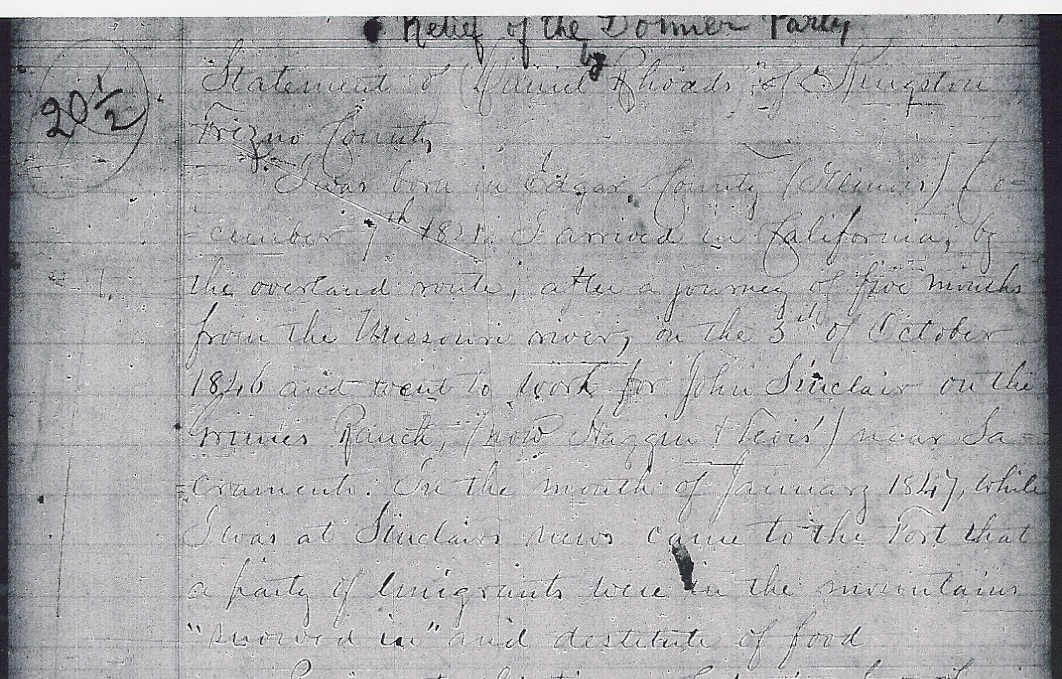 Relief of the Donner Party
by
20 1/2
Statement of Daniel Rhoads, of Kingston
Frezno County
I was born in Edgar County (Illinois) De-
-cember 7th 1821. I arrived in California, by
the overland route, after a journey of five months
from the Missouri river, on the 3rd of October
1846 and went to work for John Sinclair on the
Grimes Ranch, (now Haggin & Tevis') near Sa-
=cramento. In the month of January 1847, while
I was at Sinclairs news came to the Fort that
a party of Emigrants were in the mountains
"snowed in" and destitute of food